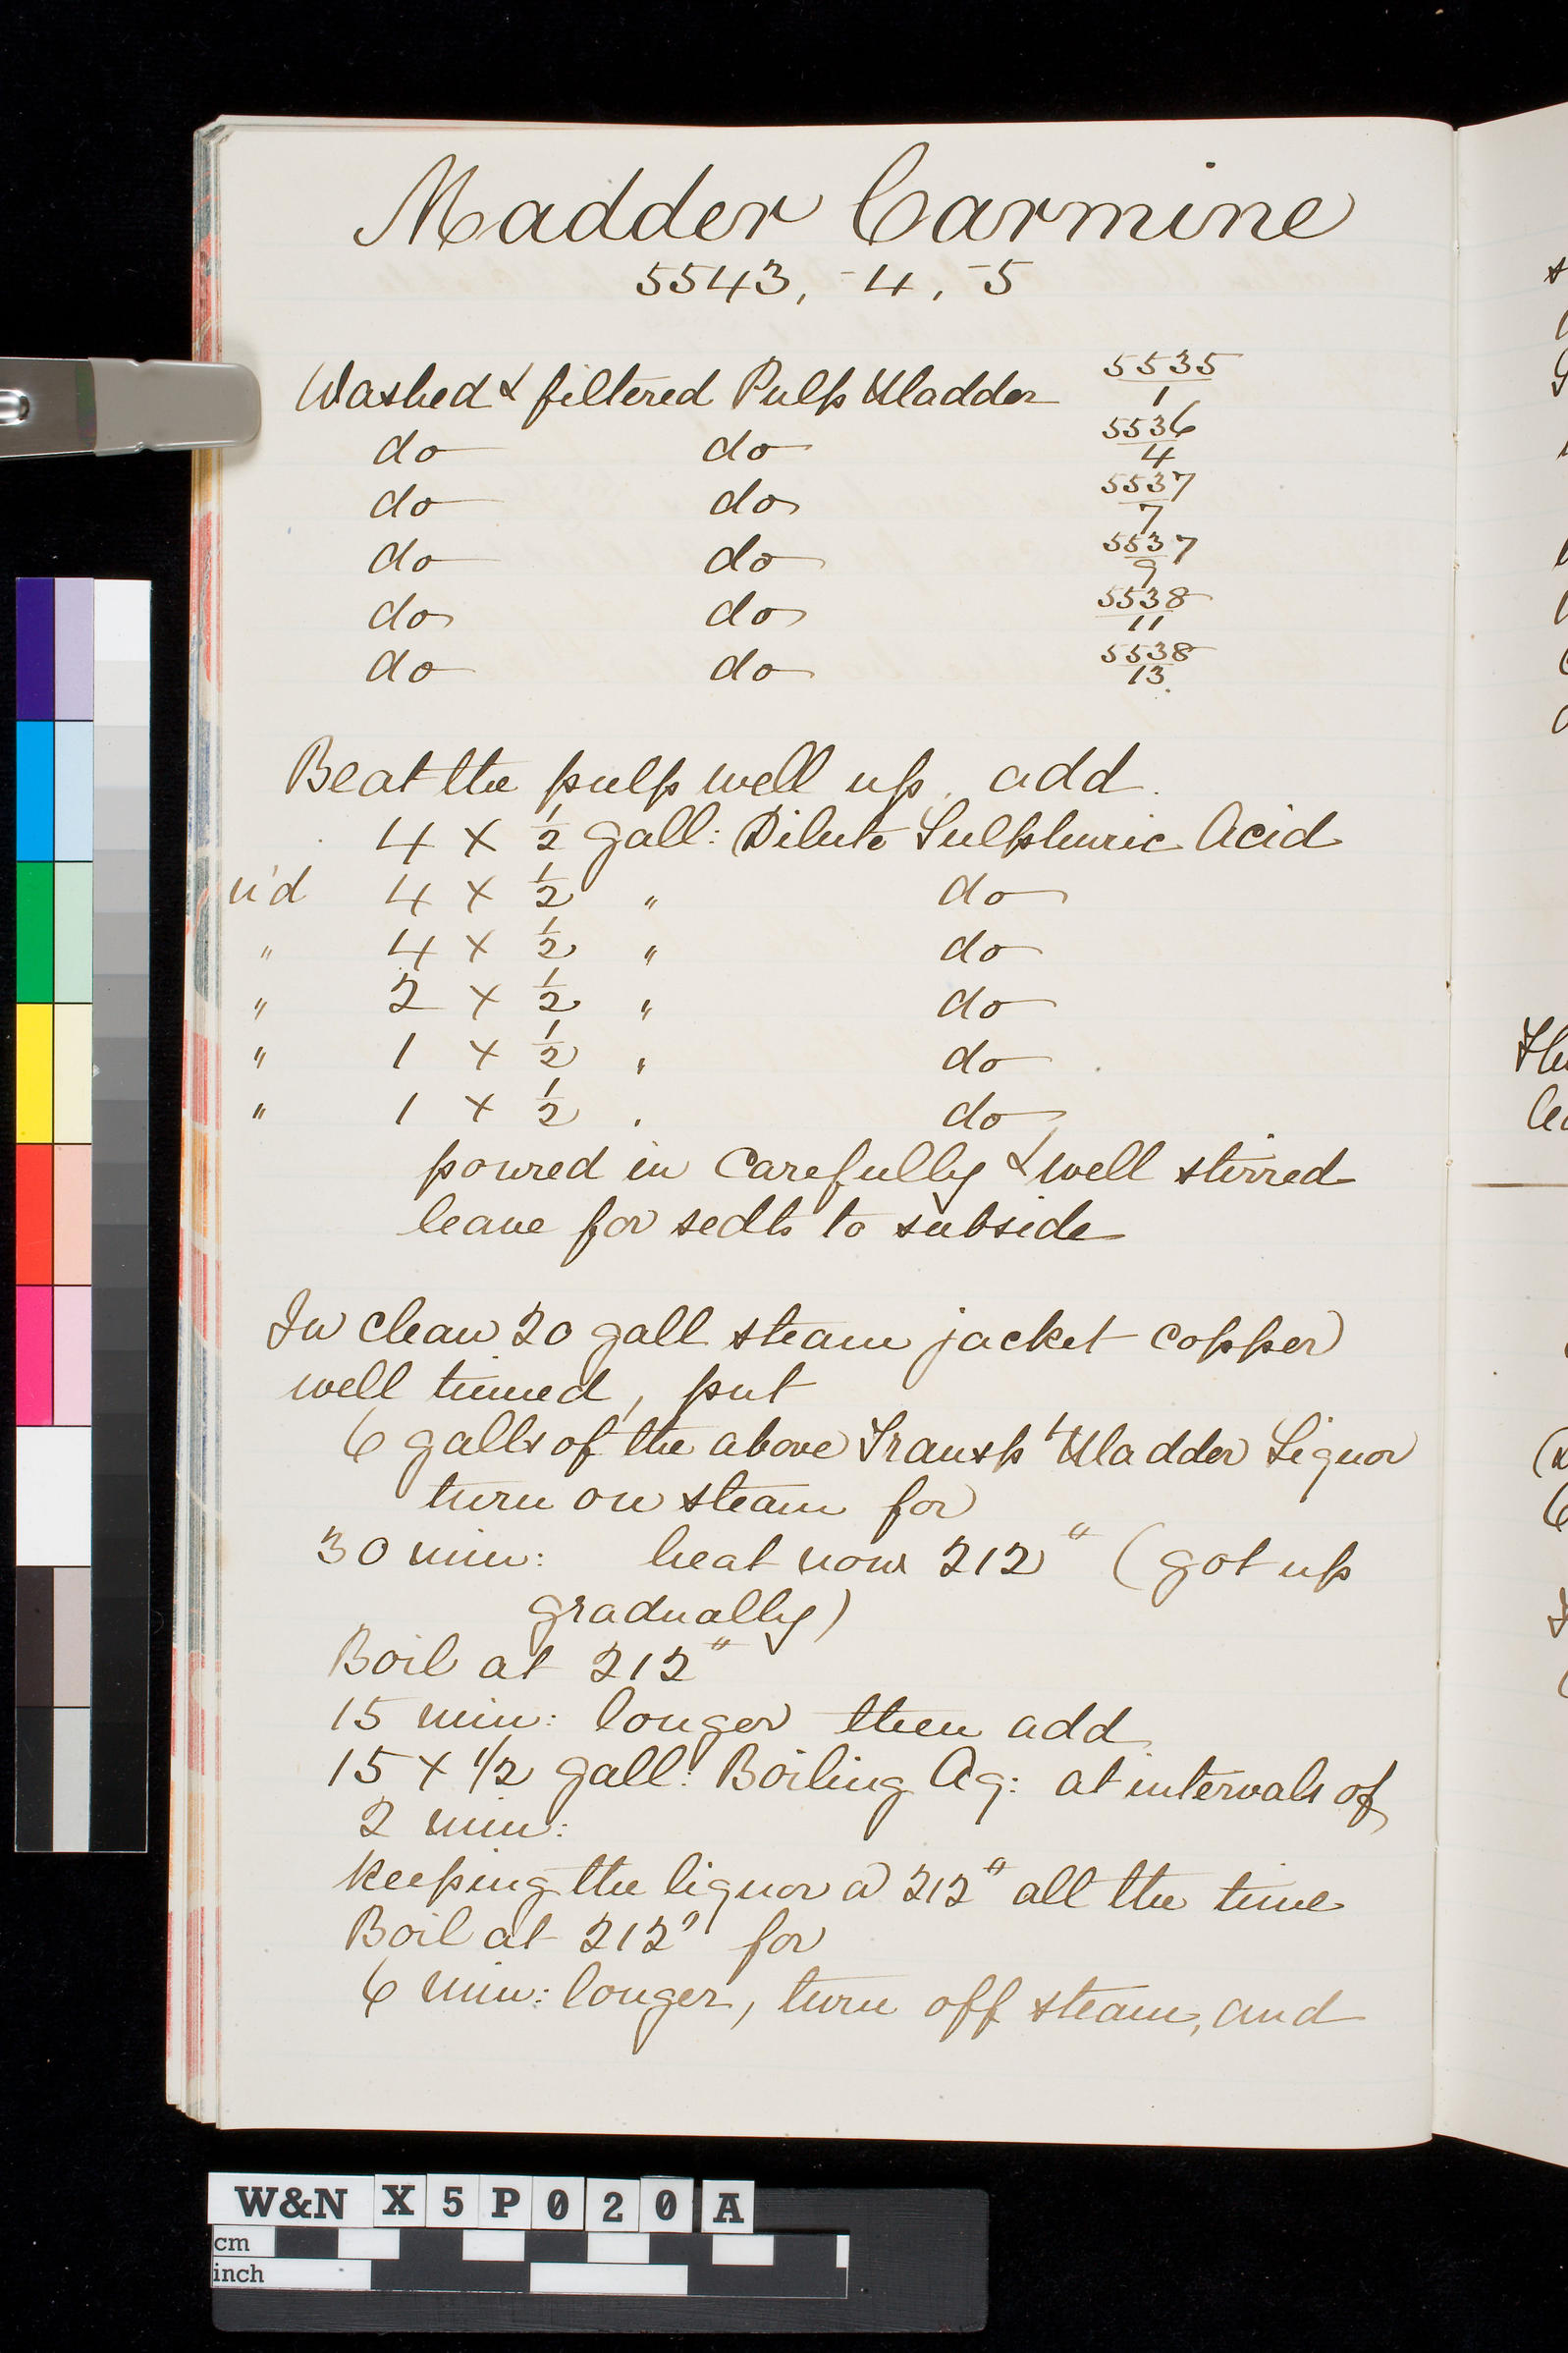 Madder Carmine
5543, -4, -5
Washed & filtered Pulp Madder 5535/1
do do 5536/4
do do 5537/7
do do 5537/9
do do 5538/11
do do 5538/13
Beat the pulp well up. add.
4 x ½ gall: Dilute Sulphuric Acid
u'd 4 x ½ " do
" 4 x ½ " do
" 2 x ½ " do
" 1 x ½ " do
" 1 x ½ " do
poured in carefully & well stirred
leave for sedts to subside
In clean 20 gall steam jacket copper
well tinned, put
6 galls of the above Transpt Madder Liquor
turn on steam for
30 min: heat now 212° (got up
gradually)
Boil at 212°
15 min: longer then add
15 x 1/2 gall: Boiling Aq: at intervals of
2 min:
keeping the liquor @ 212° all the time
Boil at 212° for
6 min: longer, turn off steam, and
W&N X5P020A
cm
inch